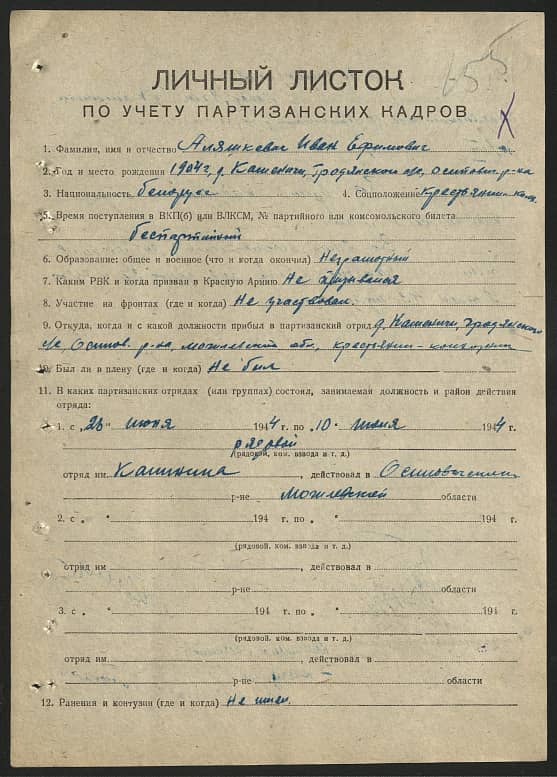 655
ЛИЧНЫЙ ЛИСТОК
ПО УЧЕТУ ПАРТИЗАНСКИХ КАДРОВ
1. Фамилия, имя и отчество Аляшкевич Иван Ефимович
2. Год и место рождения 1904 г, д. Каменичи, Гродянского с/с, Осипович. р-на
3. Национальность белорус 4. Соцположение Крестьянин-кол.
5. Время поступления в ВКП(б) или ВЛКСМ, № партийного или комсомольского билета
беспартийный
6. Образование: общее и военное (что и когда окончил) Неграмотный
7. Каким РВК и когда призван в Красную Армию Не призывался
8. Участие на фронтах (где и когда) Не участвовал.
9. Откуда, когда и с какой должности прибыл в партизанский отряд д. Каменичи, Гродянского
с/с Осипов. р-на, Могилевской обл, крестьянин-колхозник
10. Был ли в плену (где и когда) Не был
11. В каких партизанских отрядах (или группах) состоял, занимаемая должность и район действия
отряда:
1. с „ " июня 1944 г. по „10" июля 1944 г.
рядовой
(рядовой, ком. взвода и т. д.)
отряд им Калинина, действовал в Осиповичском
р-не Могилевской области
2. с „ " 194 г. по „ " 194 г.
(рядовой, ком. взвода и т. д.)
отряд им , действовал в
р-не области
3. с „ " 194 г. по „ " 194 г.
(рядовой, ком. взвода и т. д.)
отряд им. , действовал в
р-не области
12. Ранения и контузии (где и когда) Не имел.